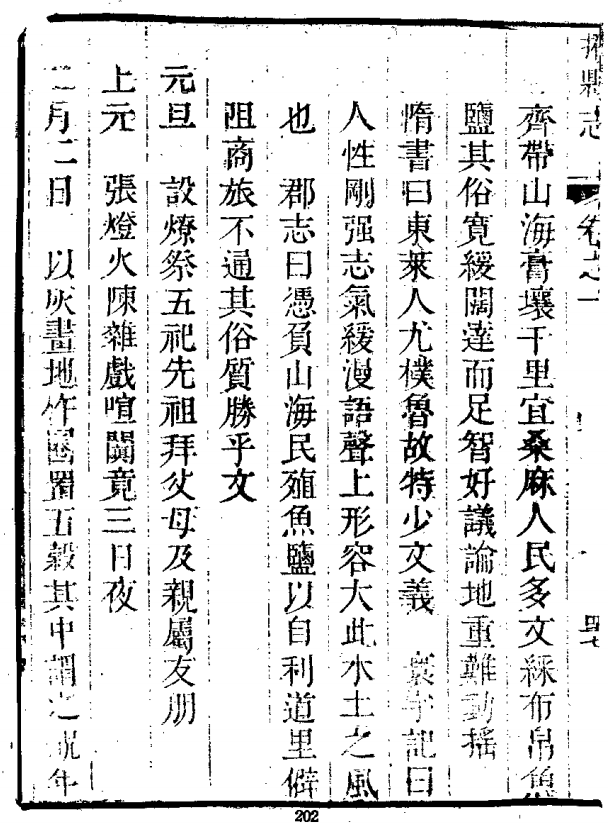 掖縣志 卷之一
齊帶山海膏壤千里宜桑麻人民多文綵布帛魚
鹽其俗寬緩闊達而足智好議論地重難動搖
惰書曰東萊人尤樸魯故特少文義 寰宇記曰
人性剛强志氣緩漫語聲上形容大此水土之風
也 郡志曰憑負山海民殖魚鹽以自利道里僻
阻商旅不通其俗質勝乎文
元旦 設燎祭五祀先祖拜父母及親屬友朋
上元 張燈火陳雜戲喧闐竟三日夜
月二日 以灰畫地作囷置五穀其中謂之
202